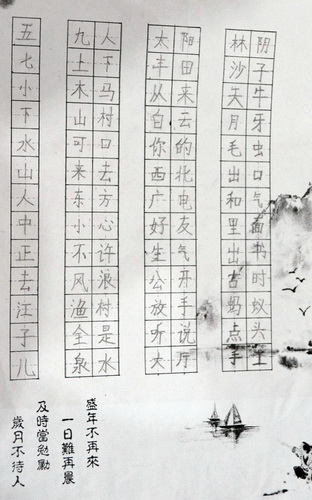 五
七
小
下
水
山
人
中
正
去
江
子
儿
九人
上下
木马
山村
可口
来去
东方
小心
不许
风浪
渔村
全是
泉水
太阳
丰田
从来
白云
你的
西北
广电
好友
生气
公开
放手
听说
大厅
林阴
沙子
天牛
月牙
毛虫
出口
和气
里面
出书
古时
蚂蚁
点头
手土
盛年不再來
一日難再晨
及時當勉勵
歲月不待人